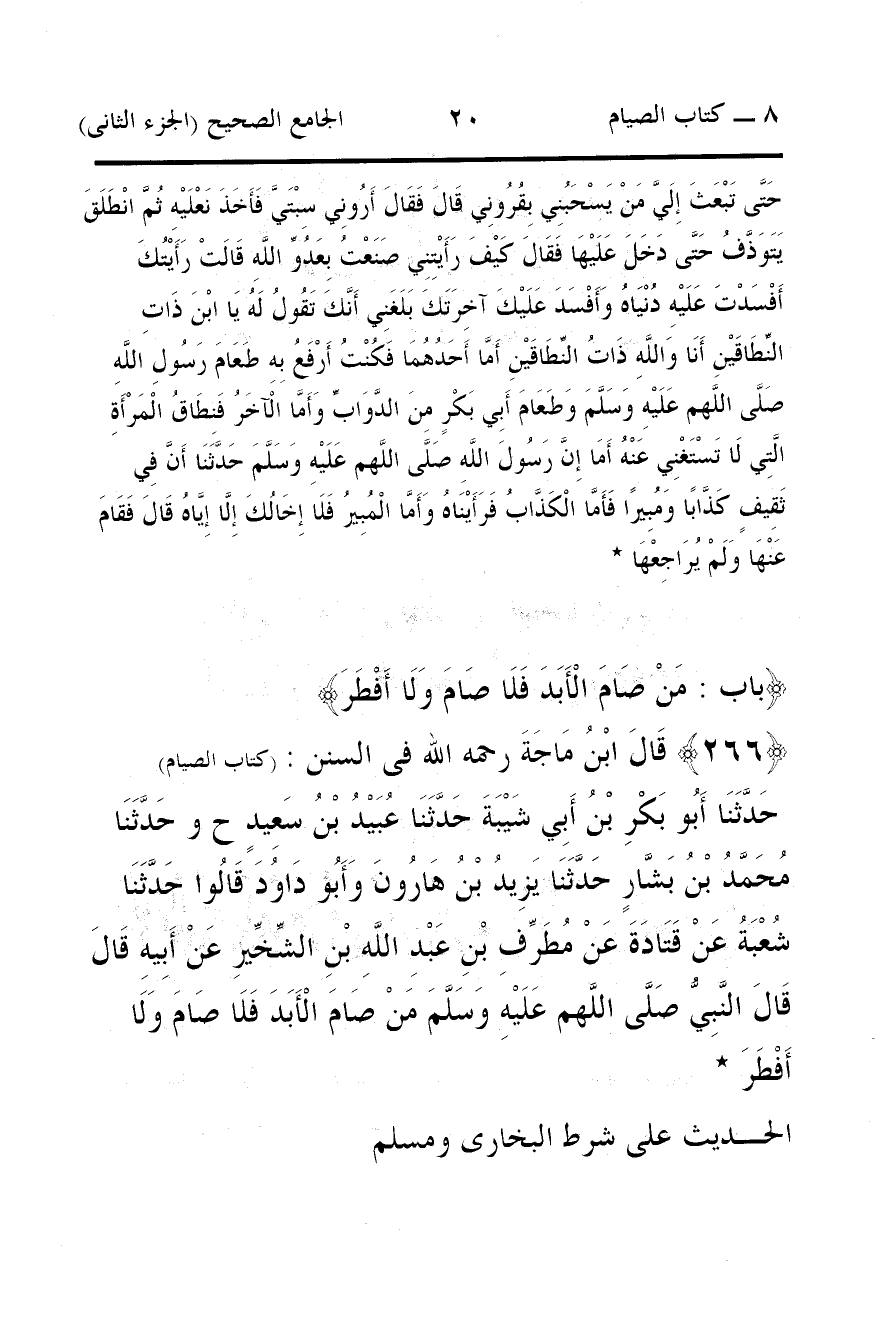 ٨ ــ كتاب الصيام ٢٠ الجامع الصحيح (الجزء الثانى)
حَتَّى تَبْعَثَ إِلَيَّ مَنْ يَسْحَبُنِي بِقُرُونِي قَالَ فَقَالَ أَرُونِي سِبْتَيَّ فَأَخَذَ نَعْلَيْهِ ثُمَّ انْطَلَقَ
يَتَوَذَّفُ حَتَّى دَخَلَ عَلَيْهَا فَقَالَ كَيْفَ رَأَيْتِنِي صَنَعْتُ بِعَدُوِّ اللَّهِ قَالَتْ رَأَيْتُكَ
أَفْسَدْتَ عَلَيْهِ دُنْيَاهُ وَأَفْسَدَ عَلَيْكَ آخِرَتَكَ بَلَغَنِي أَنَّكَ تَقُولُ لَهُ يَا ابْنَ ذَاتِ
النِّطَاقَيْنِ أَنَا وَاللَّهِ ذَاتُ النِّطَاقَيْنِ أَمَّا أَحَدُهُمَا فَكُنْتُ أَرْفَعُ بِهِ طَعَامَ رَسُولِ اللَّهِ
صَلَّى اللَّهم عَلَيْهِ وَسَلَّمَ وَطَعَامَ أَبِي بَكْرٍ مِنَ الدَّوَابِّ وَأَمَّا الْآخَرُ فَنِطَاقُ الْمَرْأَةِ
الَّتِي لَا تَسْتَغْنِي عَنْهُ أَمَا إِنَّ رَسُولَ اللَّهِ صَلَّى اللَّهم عَلَيْهِ وَسَلَّمَ حَدَّثَنَا أَنَّ فِي
ثَقِيفٍ كَذَّابًا وَمُبِيرًا فَأَمَّا الْكَذَّابُ فَرَأَيْنَاهُ وَأَمَّا الْمُبِيرُ فَلَا إِخَالُكَ إِلَّا إِيَّاهُ قَالَ فَقَامَ
عَنْهَا وَلَمْ يُرَاجِعْهَا *
﴿باب : مَنْ صَامَ الْأَبَدَ فَلَا صَامَ وَلَا أَفْطَرَ﴾
﴿٢٦٦﴾ قَالَ ابْنُ مَاجَةَ رحمه الله فى السنن : (كتاب الصيام)
حَدَّثَنَا أَبُو بَكْرِ بْنُ أَبِي شَيْبَةَ حَدَّثَنَا عُبَيْدُ بْنُ سَعِيدٍ ح و حَدَّثَنَا
مُحَمَّدُ بْنُ بَشَّارٍ حَدَّثَنَا يَزِيدُ بْنُ هَارُونَ وَأَبُو دَاوُدَ قَالُوا حَدَّثَنَا
شُعْبَةُ عَنْ قَتَادَةَ عَنْ مُطَرِّفِ بْنِ عَبْدِ اللَّهِ بْنِ الشِّخِّيرِ عَنْ أَبِيهِ قَالَ
قَالَ النَّبِيُّ صَلَّى اللَّهم عَلَيْهِ وَسَلَّمَ مَنْ صَامَ الْأَبَدَ فَلَا صَامَ وَلَا
أَفْطَرَ *
الحـــديث على شرط البخارى ومسلم